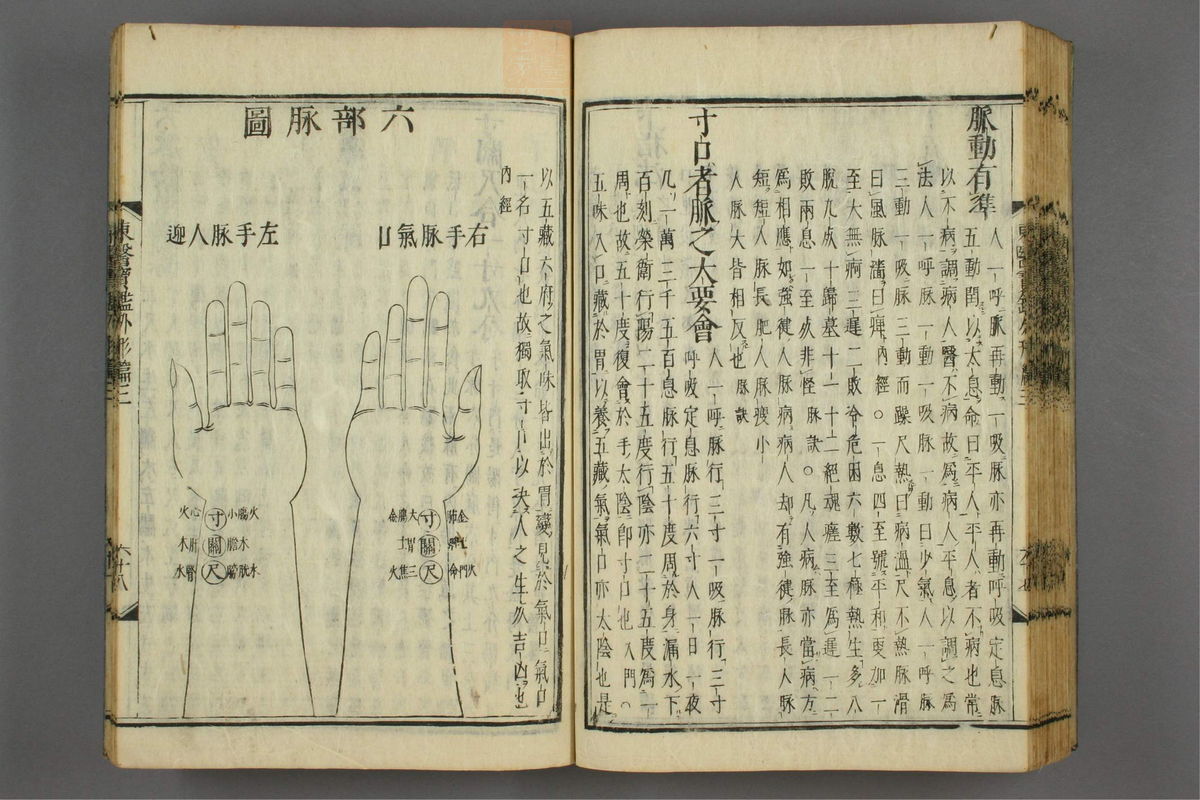 脈動有準
人一呼脈再動一吸脈亦再動呼吸定息脈
五動閏以太息命曰平人平人者不病也常
以不病調病人醫不病故爲病人平息以調之爲
法人一呼脈一動一吸脈一動曰少氣人一呼脈
三動一吸脈三動而躁尺熱曰病溫尺不熱脈滑
曰風脈濇曰痺內經○一息四至號平和更加一
至大無痾三遲二敗冷危困六數七極熱生多八
脫九死十歸墓十一十二絕魂瘥三至爲遲一二
敗兩息一至死非怪脈訣○凡人病脈亦當病方
爲相應如強健人脈病病人却有強健脈長人脈
短短人脈長肥人脈瘦小
人脈大皆相反也脈訣
寸口者脈之大要會
人一呼脈行三寸一吸脈行三寸
呼吸定息脈行六寸人一日一夜
凡一萬三千五百息脈行五十度周於身漏水下
百刻榮衛行陽二十五度行陰亦二十五度爲一
周也故五十度復會於手太陰卽寸口也入門○
五味入口藏於胃以養五藏氣氣口亦太陰也是
以五藏六府之氣味皆出於胃變見於氣口氣口
一名寸口也故獨取寸口以決人之生死吉凶也
內經
六部脉圖
右手脈氣口
左手脈人迎
寸 大腸金
關 胃土
尺 命門火 三焦火
心火 寸 小腸火
肝木 關 膽木
腎水 尺 膀胱水
東醫寶鑑外形篇二
六十八